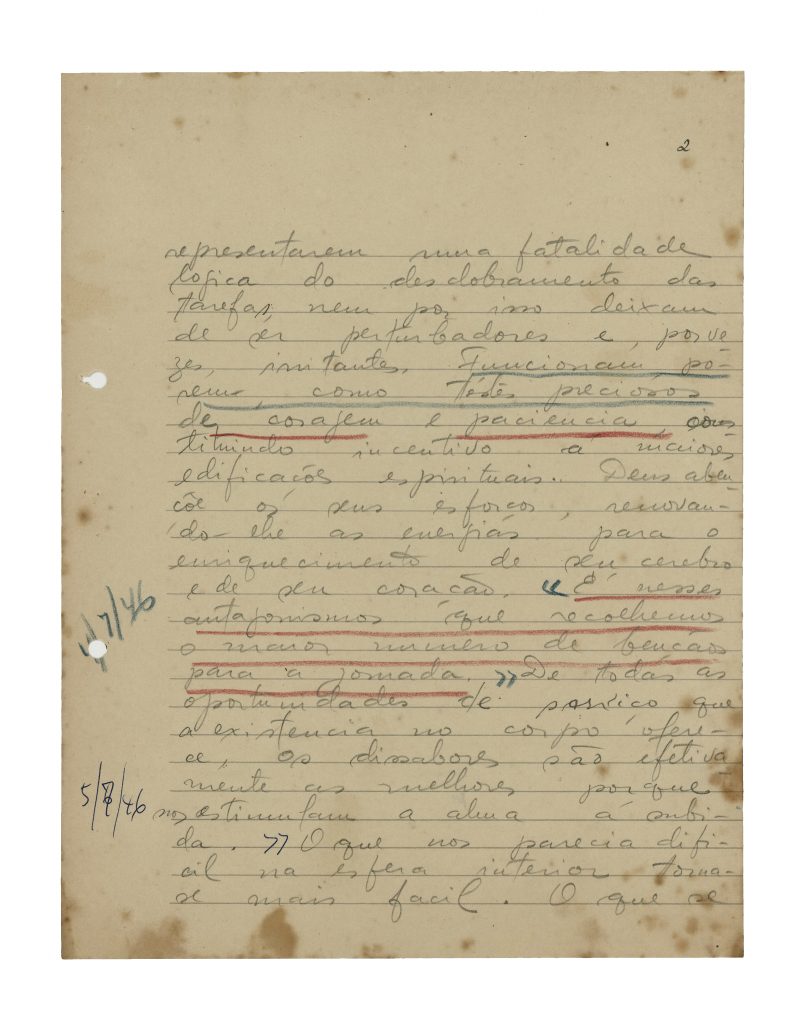 2
representarem uma fatalidade
logica do desdobramento das
tarefas, nem por isso deixam
de ser perturbadores e, por ve
zes, irritantes. Funcionam, po-
rem, como téstes preciosos
de corajem e paciencia, cons
tituindo incentivo a maiores
edificações espirituais. Deus aben-
çõe os seus esforços, renovan-
do-lhe as energias para o
enriquecimento de seu cerebro
e de seu coração. « É nesses
antagonismos que recolhemos
7/46
o maior numero de bençãos
para a jornada. » De todas as
oportunidades de serviço que
a existencia no corpo ofere-
ce, os dissabores são efetiva
mente as melhores porque
5/8/46 nos estimulam a alma á subi-
da. » O que nos parecia difi-
cil na esfera interior torna-
se mais facil. O que se